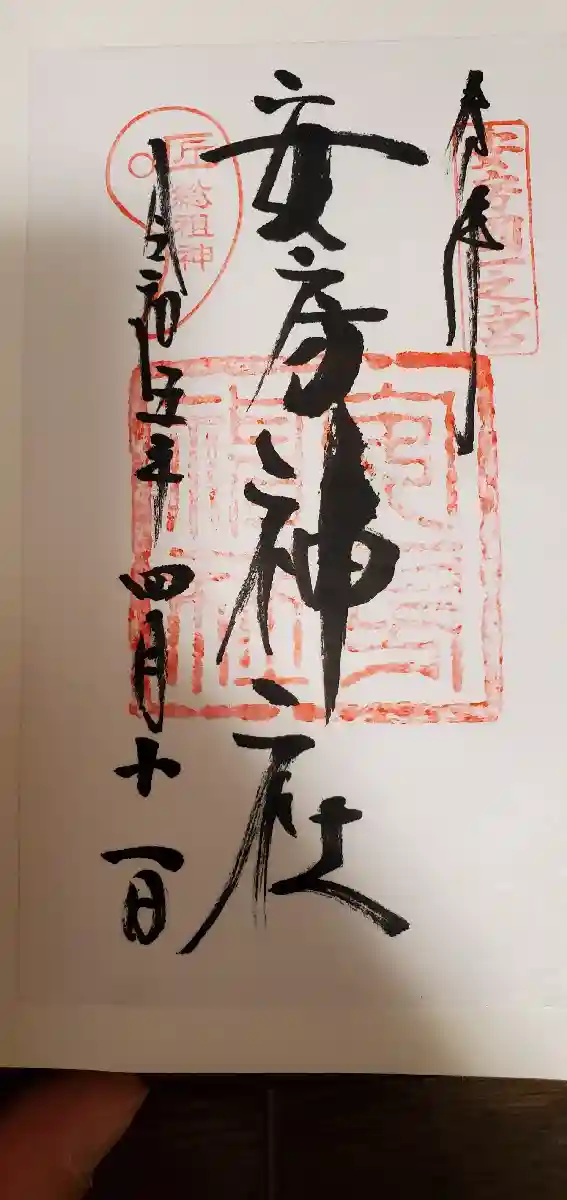 奉拝
安房國一之宮
安房神社
安房神社
匠
総祖神
令和五年四月十一日